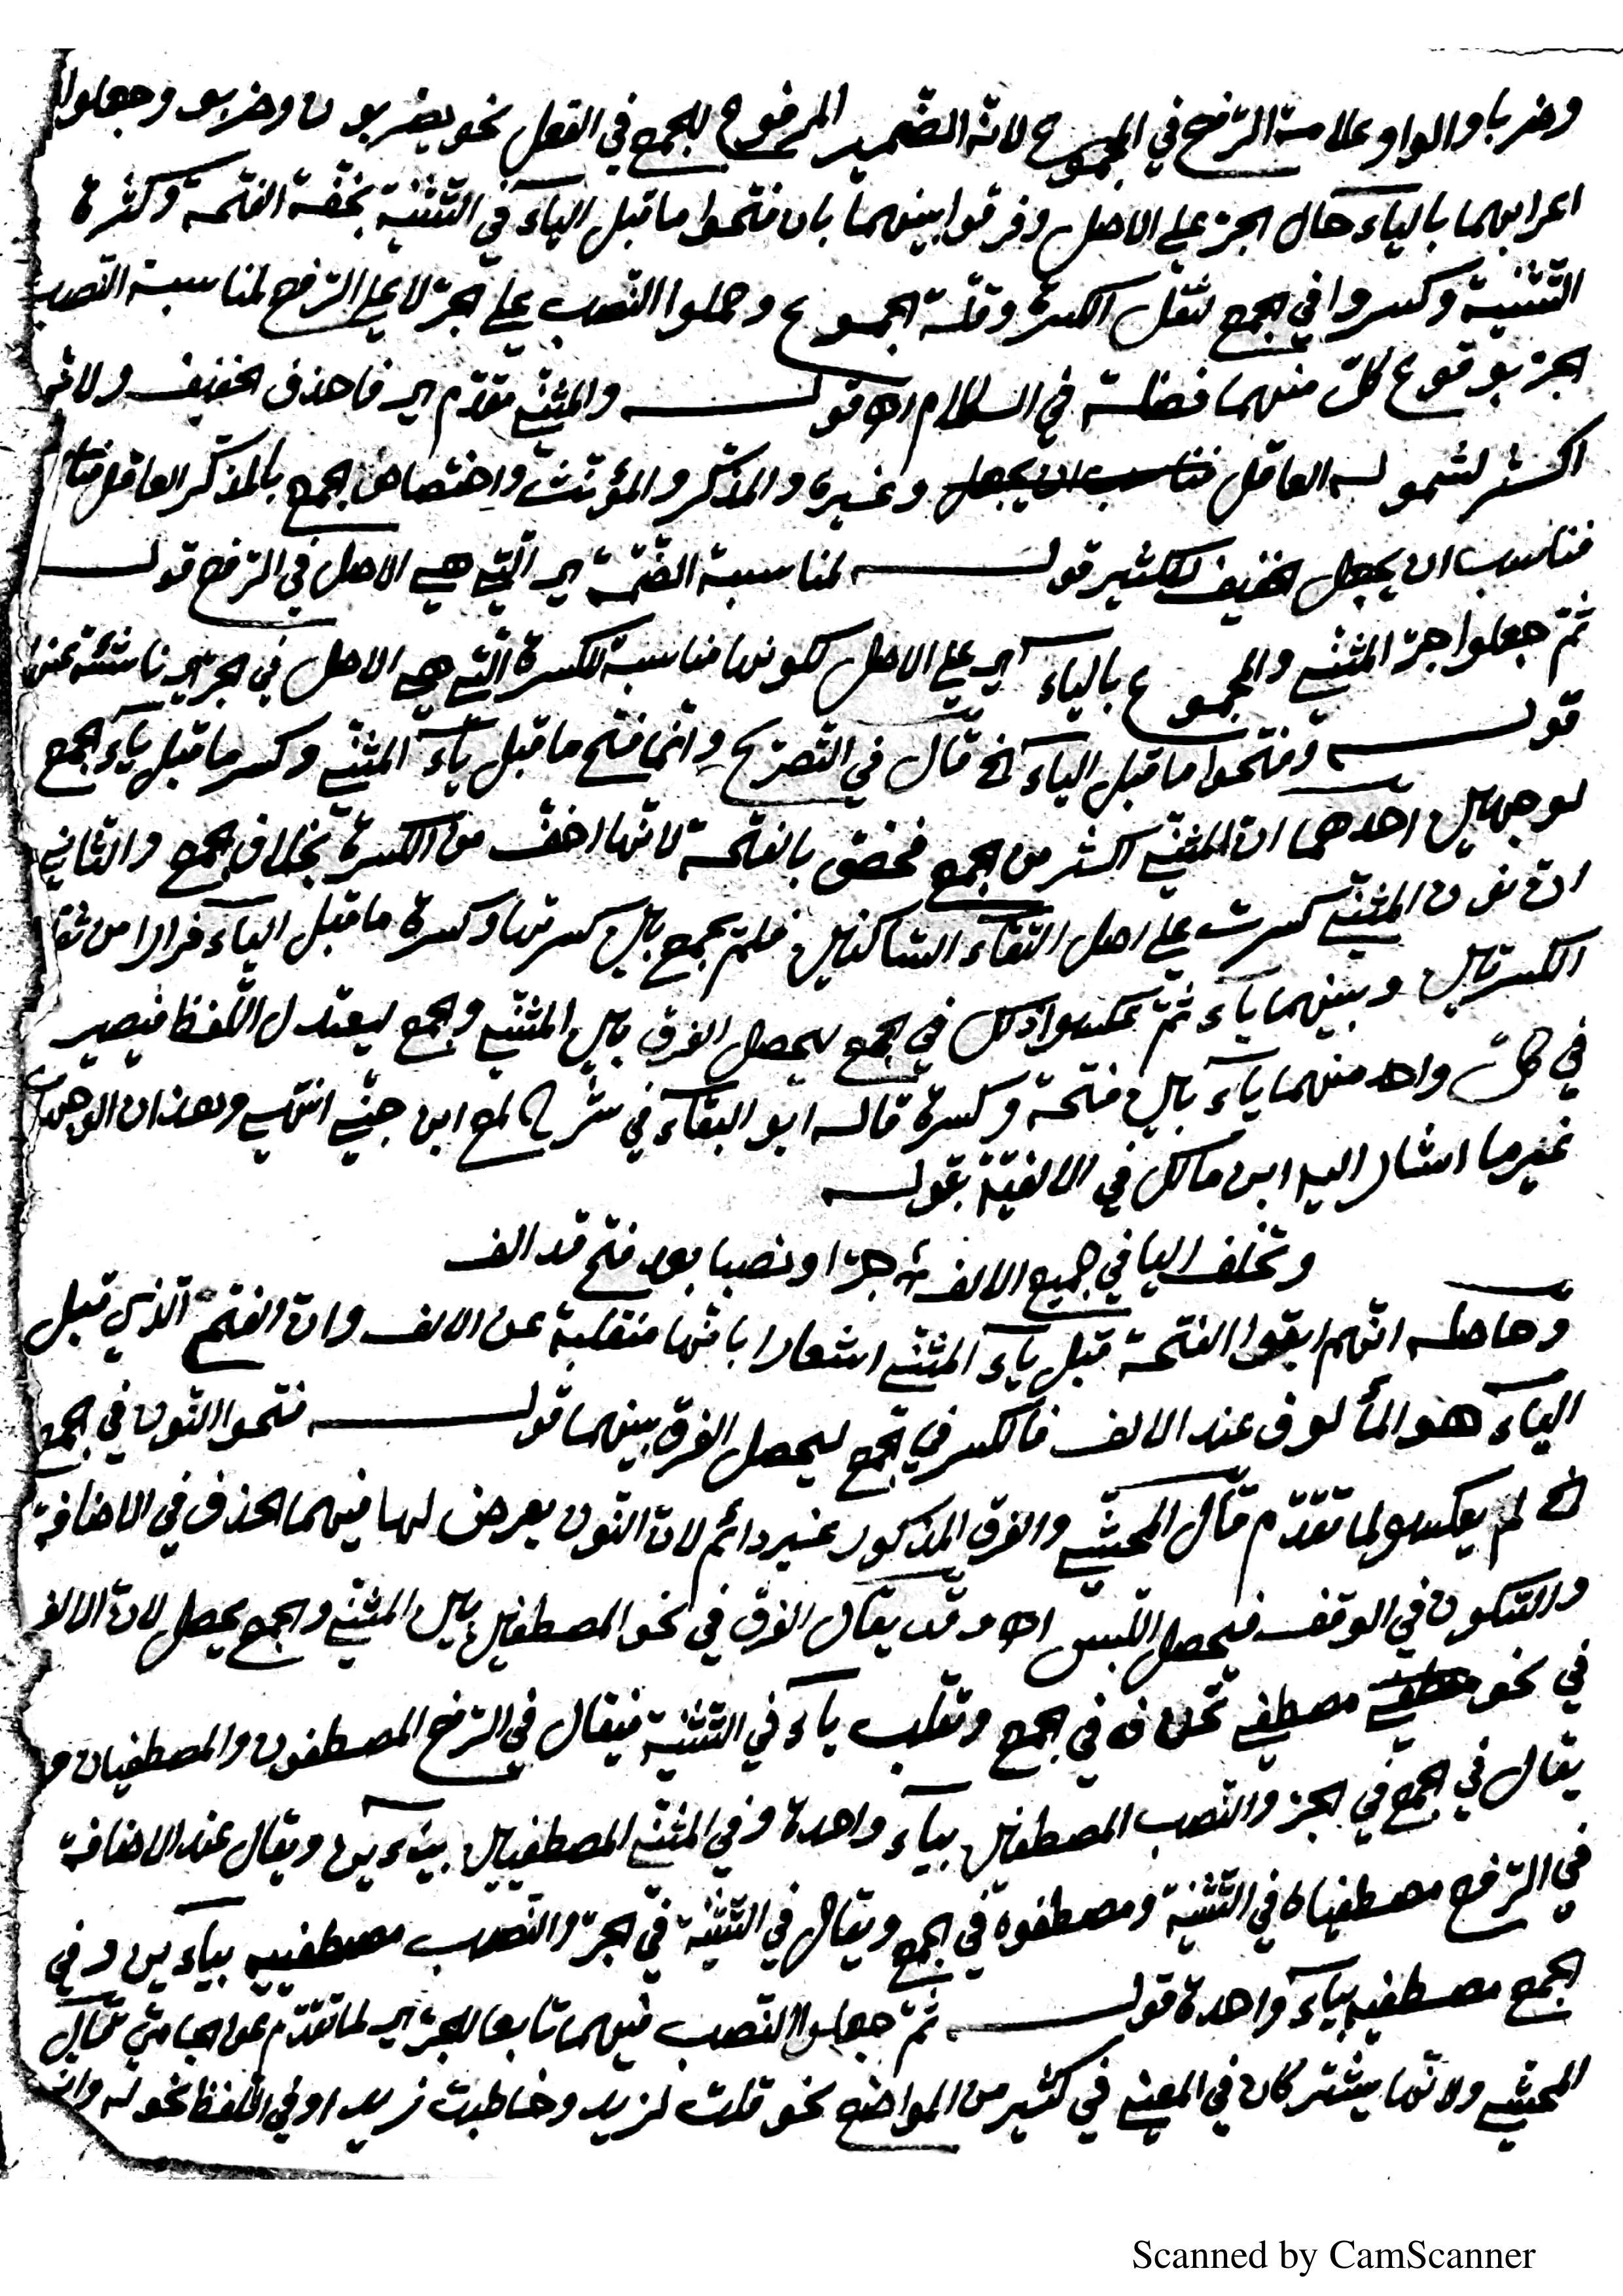 وضربا والواو علامة الرّفع في المجموع لانه الضّمير المرفوع للجمع في الفعل نحو يضربون وضربو وجعلوا
اعرابهما بالياء حال الجرّ على الاصل وفرقوا بينهما بان فتحوا ما قبل الياء في التّثنية بخفّة الفتحة وكثرة
التثنية وكسروا في الجمع لثقل الكسرة وقلّة المجموع وحملوا النّصب على الجرّ لا على الرّفع لمناسبة النّصب
الجرّ بوقوع كلّ منهما فضلة في الكلام اه قوله والمثنّى مقدّم اي فاخذ الخفيف ولانه
اكثر لشموله العاقل وغيره والمذكّر والمؤنّث واختصاص الجمع بالمذكّر العاقل
فناسب ان يجعل الخفيف للكثير قوله لمناسبة الضّمّة اي الّتي هي الاصل في الرّفع قوله
ثمّ جعلوا جرّ المثنّى والمجموع بالياء اي على الاصل لكونها مناسبة للكسرة الّتي هي الاصل في الجرّ اي ناشئة عنها
قوله وفتحوا ما قبل الياء الخ قال في التّصريح وانّما فتح ما قبل ياء المثنّى وكسر ما قبل ياء الجمع
لوجهين احدهما انّ المثنّى اكثر من الجمع فخصّ بالفتحة لانّها اخفّ من الكسرة بخلاف الجمع والثاني
انّ نون المثنّى كسرت على اصل التقاء السّاكنين فلم يجمع بين كسرتها وكسرة ما قبل الياء فرارا من ثقل
الكسرتين وبينهما ياء ثمّ عكسوا ذلك في الجمع ليحصل الفرق بين المثنّى والجمع ليعتدل اللّفظ فيصير
في كلّ واحد منهما ياء بين فتحة وكسرة قاله ابو البقاء في شرح لمع ابن جنّي انتهى وهذان الوجهان
غير ما اشار اليه ابن مالك في الالفيّة بقوله
وتخلف اليا في جميع الالف جرّا ونصبا بعد فتح قد الف
وحاصله انّهم ابقوا الفتحة قبل ياء المثنّى اشعارا بانّها منقلبة عن الالف وانّ الفتح الّذي قبل
الياء هو المألوف عند الالف فالكسر في الجمع ليحصل الفرق بينهما قوله فتحوا النّون في الجمع
الخ لم يعكسو لما تقدّم قال المحشّي والفرق المذكور غير دائم لانّ النّون يعرض لها فيهما الحذف في الاضافة
والسّكون في الوقف فيحصل اللّبس اه وقد يقال الفرق في نحو المصطفين بين المثنّى والجمع يحصل لانّ الالف
في نحو مصطفى تحذف في الجمع وتقلب ياء في التّثنية فيقال في الرّفع المصطفون والمصطفيان و
يقال في الجمع في الجرّ والنّصب المصطفين بياء واحدة وفي المثنّى المصطفيين بيائين ويقال عند الاضافة
في الرّفع مصطفياه في التّثنية ومصطفوه في الجمع ويقال في التّثنية في الجرّ والنّصب مصطفييه بياءين وفي
الجمع مصطفيه بياء واحدة قوله ثمّ جعلوا النّصب فيهما تابعا للجرّ اي لما تقدّم عن الجامي قال
المحشّي ولانّهما يشتركان في المعنى في كثير من المواضع نحو قلت لزيد وخاطبت زيدا وفي اللّفظ نحو له وانه
Scanned by CamScanner